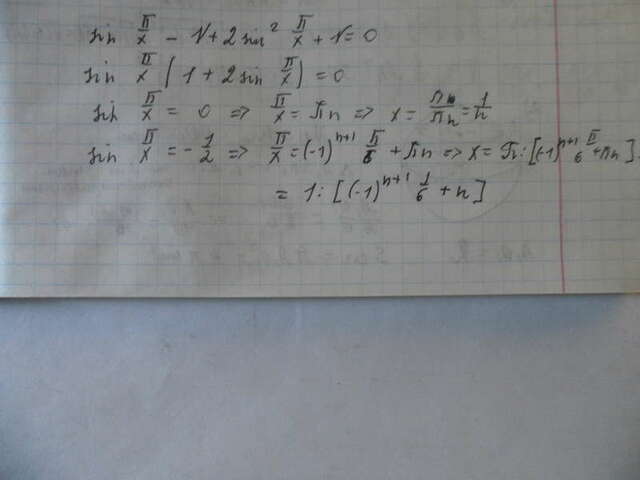 sin π/x - 1 + 2 sin² π/x + 1 = 0
sin π/x (1 + 2 sin π/x) = 0
sin π/x = 0 => π/x = πn => x = π/πn = 1/n
sin π/x = - 1/2 => π/x = (-1)^(n+1) π/6 + πn => x = π : [(-1)^(n+1) π/6 + πn]
= 1 : [(-1)^(n+1) 1/6 + n]